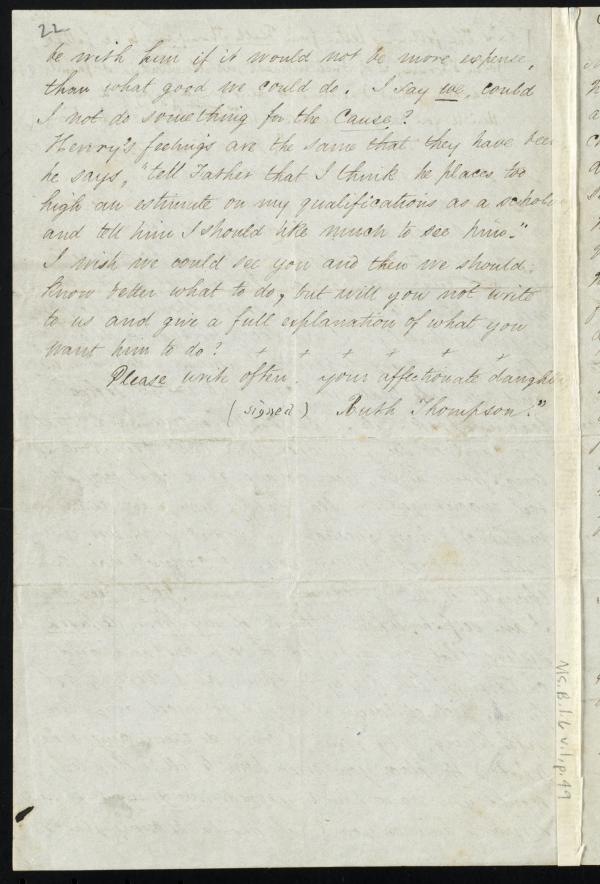 22
be with him if it would not be more expense,
than what good we could do. I say we, could
I not do something for the Cause?
Henry's feelings are the same that they have been
he says, "tell Father that I think he places too
high an estimate on my qualifications as a scholar
and tell him I should like much to see him."
I wish we could see you and then we should
know better what to do, but will you not write
to us and give a full explanation of what you
want him to do? + + + + + +
Please write often. your affectionate daughter
(signed) Ruth Thompson."
Ms. B. 1. 6 v. 1, p. 49